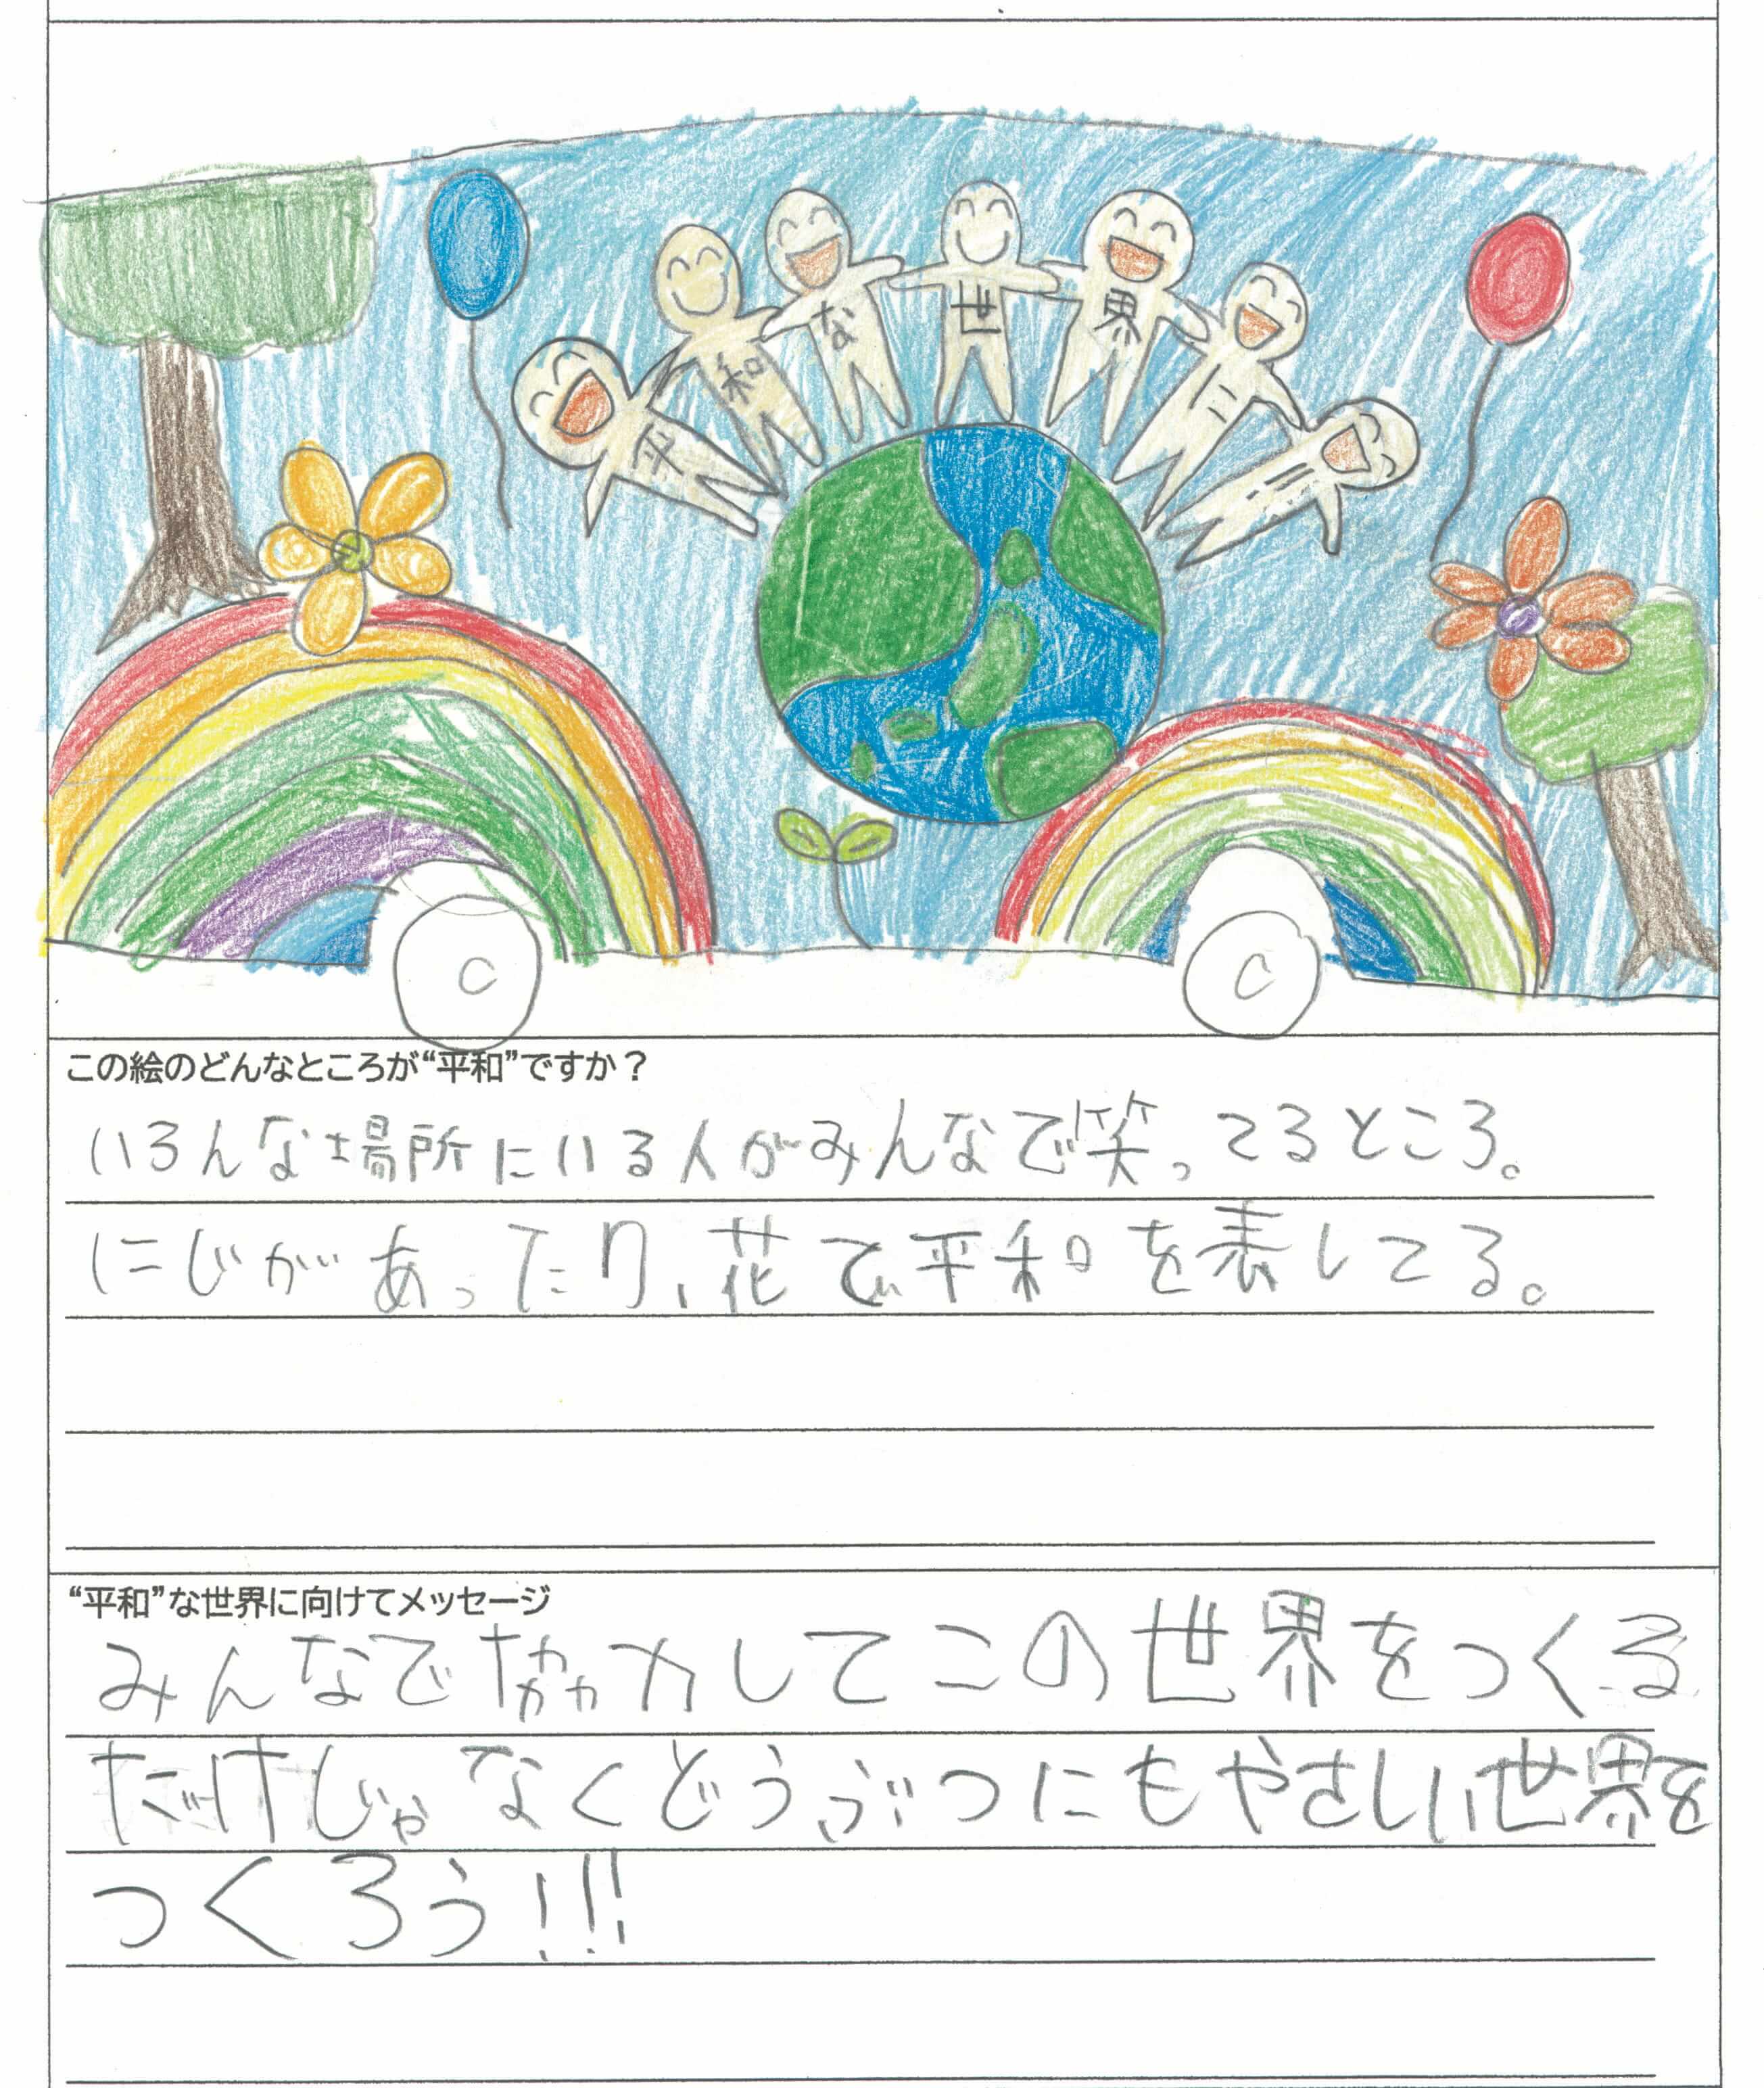 平和な世界に!!
この絵のどんなところが“平和”ですか？
いろんな場所にいる人がみんなで笑ってるところ。
にじがあったり、花で平和を表してる。
“平和”な世界に向けてメッセージ
みんなで協力してこの世界をつくる
だけじゃなくどうぶつにもやさしい世界を
つくろう!!!